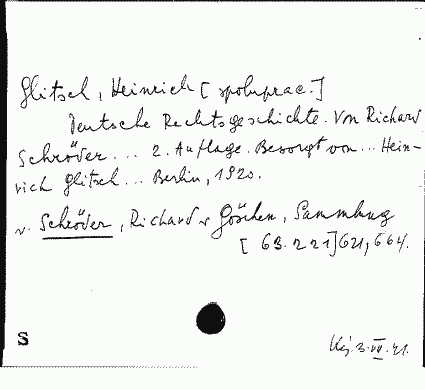 Glitsch, Heinrich [spoluprac.]
Deutsche Rechtsgeschichte. Von Richard
Schröder... 2. Auflage. Besorgt von... Hein-
rich Glitsch... Berlin, 1920.
v. Schröder, Richard v Göschen, Sammlung
[ 63.221]621,664.
S
3.VII.41.